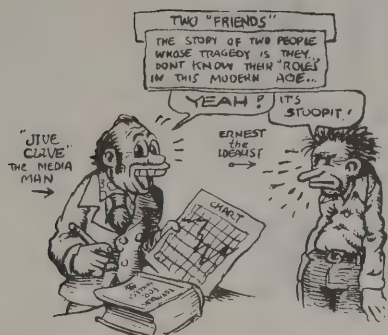 TWO "FRIENDS"
THE STORY OF TWO PEOPLE
WHOSE TRAGEDY IS THEY
DONT KNOW THEIR "ROLES"
IN THIS MODERN AGE...
YEAH!
IT'S
STUOPIT!
"JIVE
CLIVE"
THE MEDIA
MAN
ERNEST
the
IDEALIST
CHART